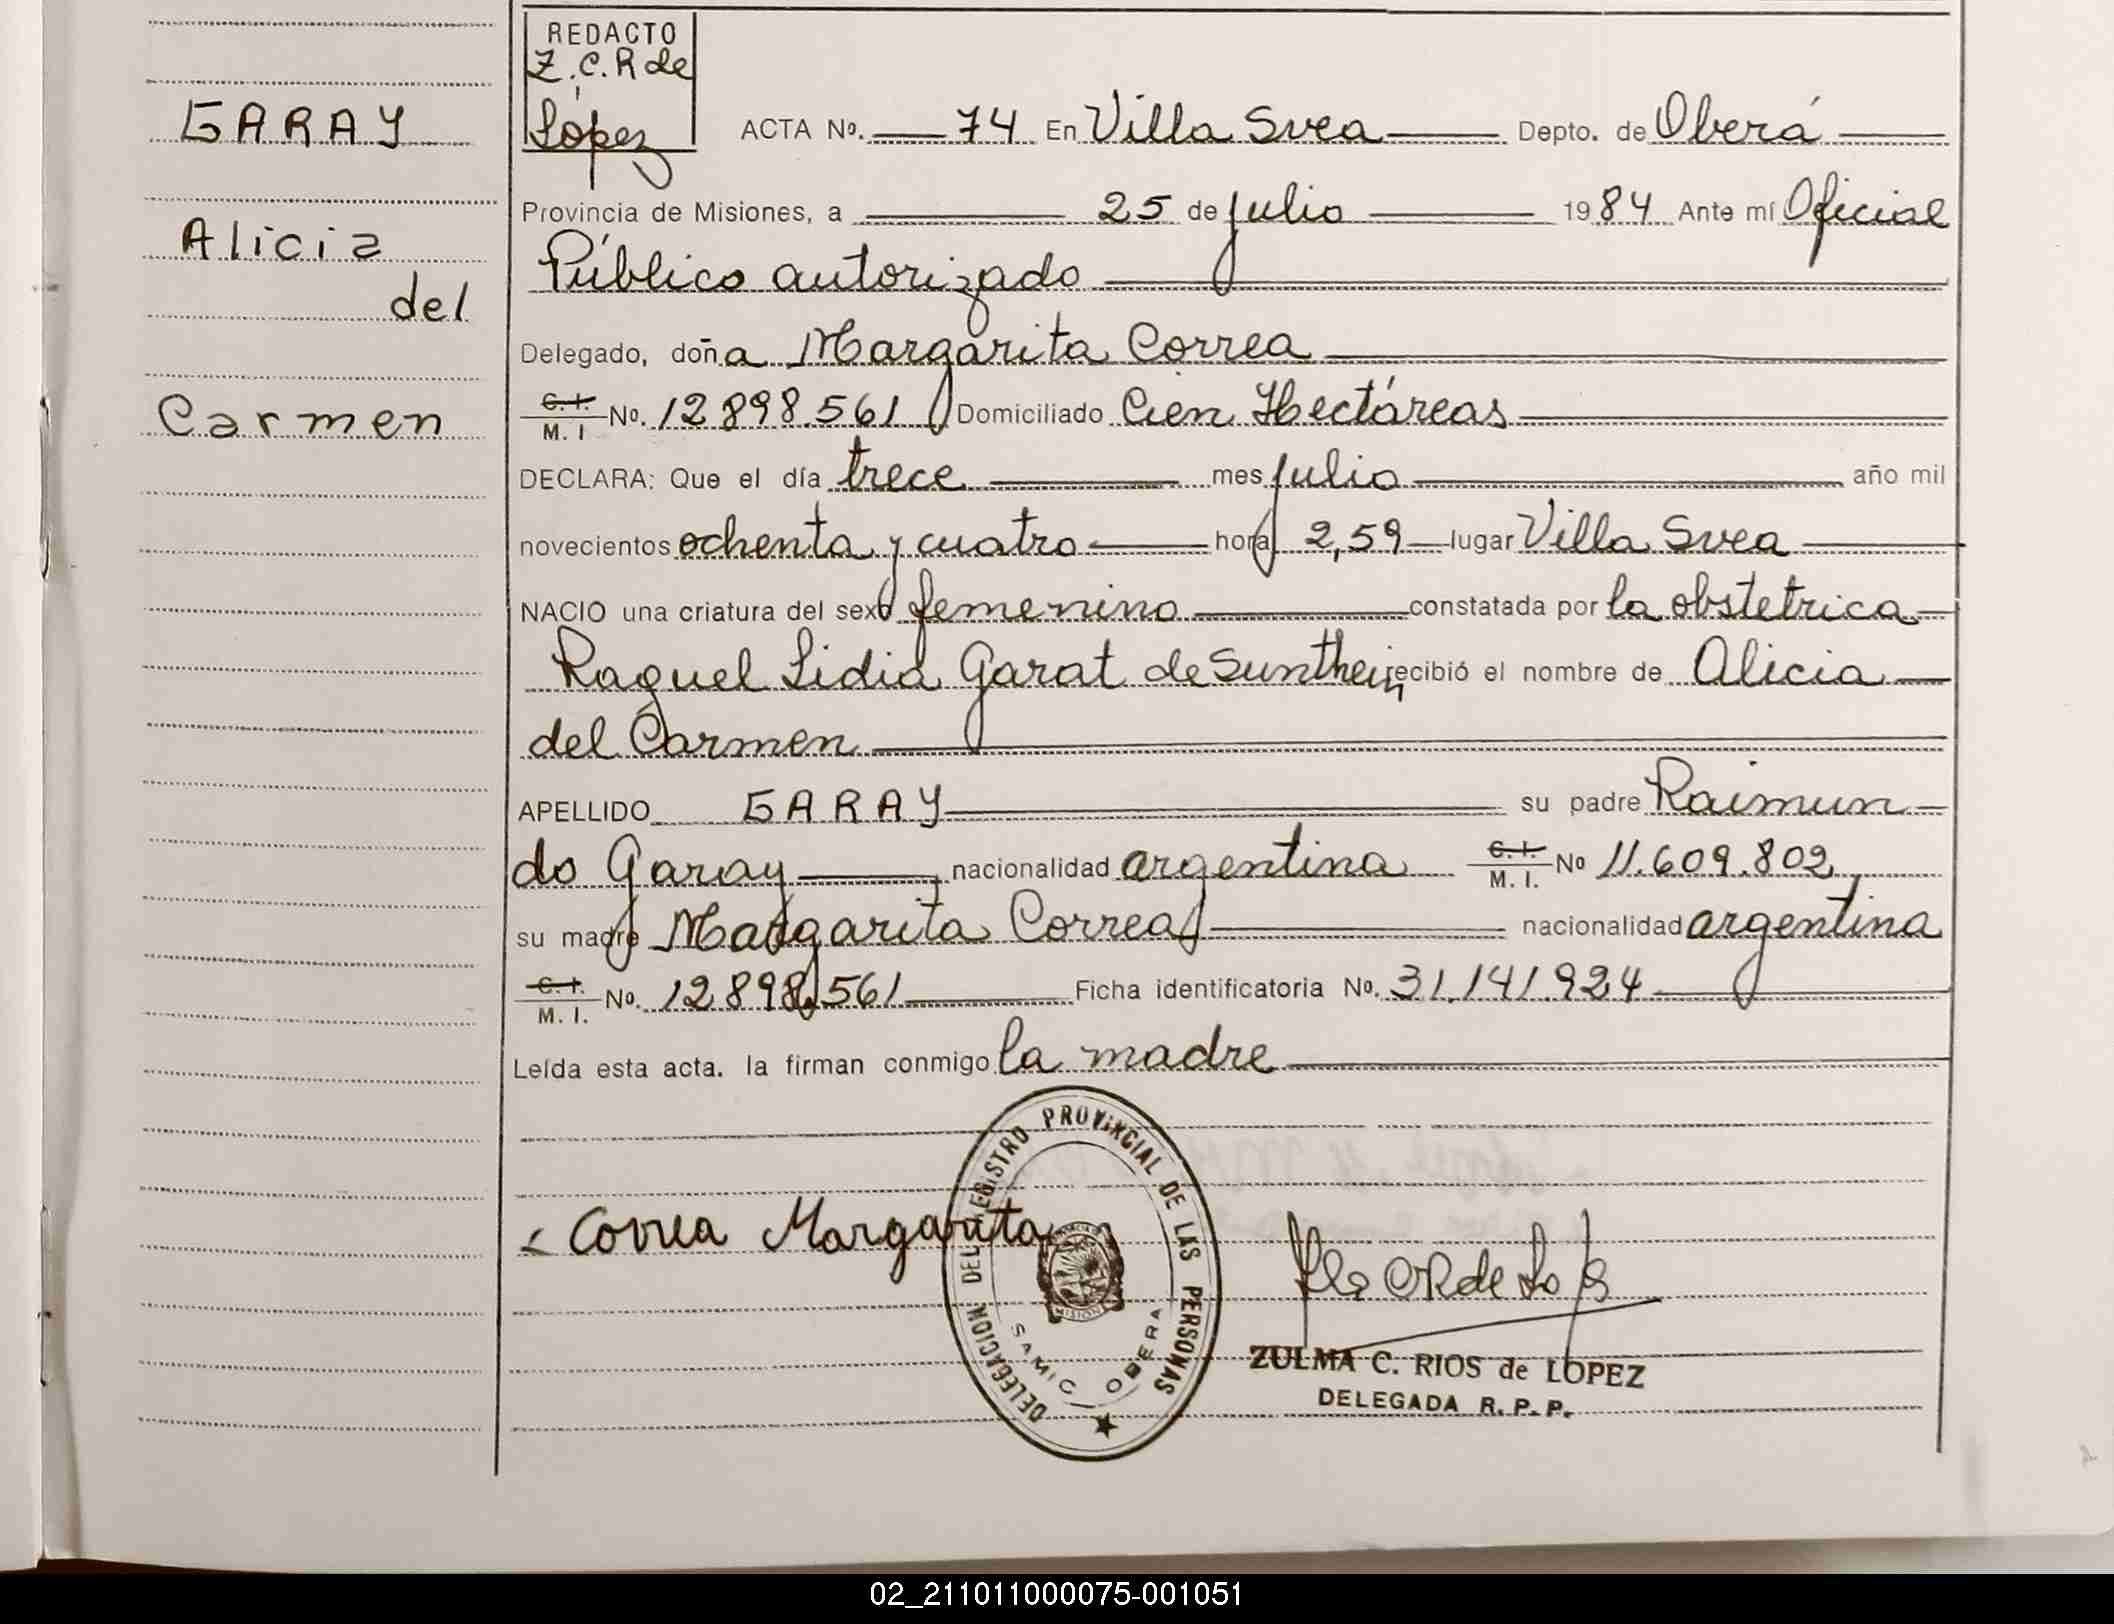 GARAY
Alicia
del
Carmen
REDACTO
Z.C.R de
López
ACTA No. 74 En Villa Svea Depto. de Oberá
Provincia de Misiones, a 25 de julio 1984 Ante mí Oficial
Público autorizado
Delegado, doña Margarita Correa
C.I. M. I No. 12898.561 Domiciliado Cien Hectáreas
DECLARA: Que el día trece mes julio año mil
novecientos ochenta y cuatro hora 2,59 lugar Villa Svea
NACIO una criatura del sexo femenino constatada por la obstetrica
Raquel Lidia Garat de Sunthein recibió el nombre de Alicia
del Carmen
APELLIDO GARAY su padre Raimun
do Garay nacionalidad argentina C.I. M. I. No 11.609.802
su madre Margarita Correa nacionalidad argentina
C.I. M. I. No. 12898.561 Ficha identificatoria No. 31.141.924
Leída esta acta. la firman conmigo la madre
DELEGACION DEL REGISTRO PROVINCIAL DE LAS PERSONAS
SAMIC OBERA
MISIONES
Correa Margarita
ZULMA C. RIOS de LOPEZ
DELEGADA R. P. P.
02_211011000075-001051